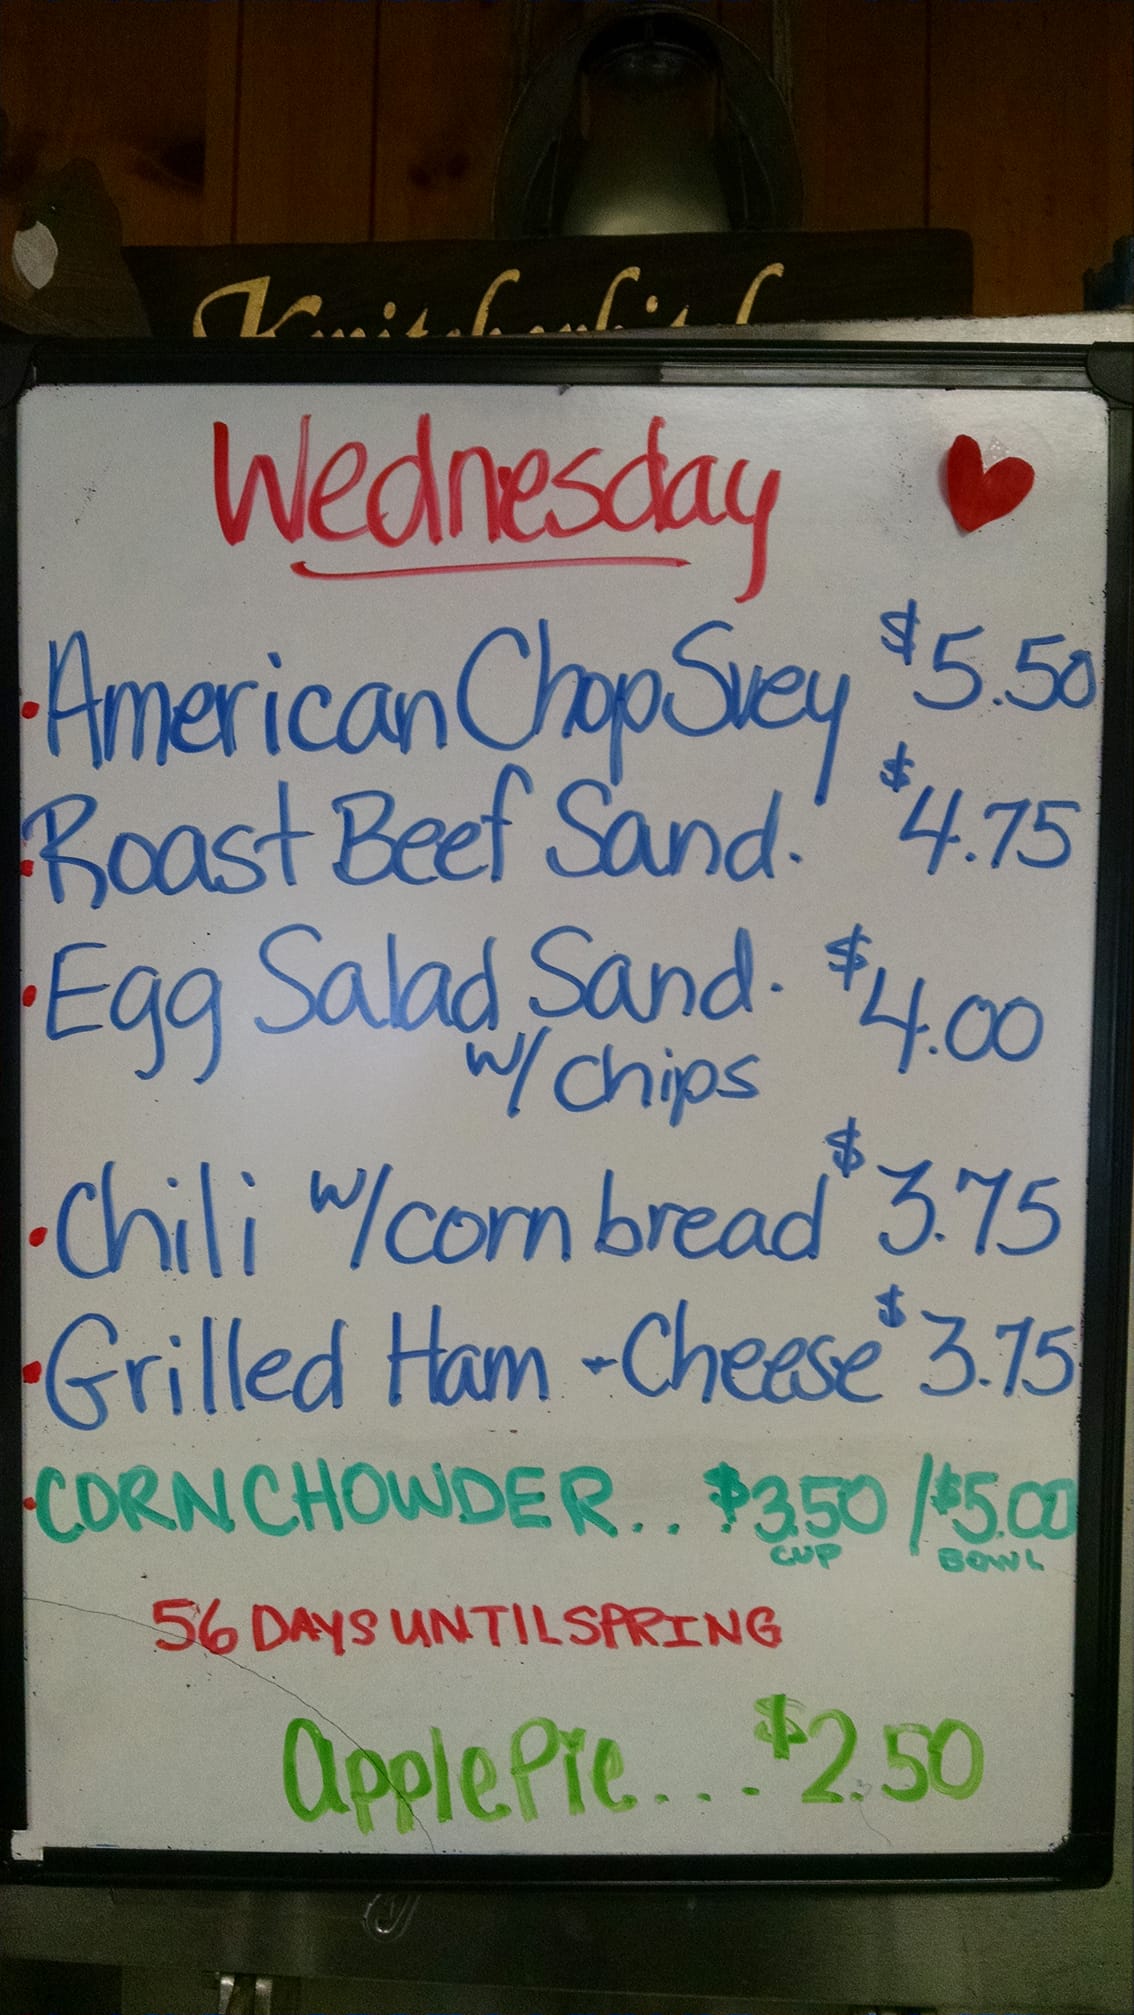 Wednesday
American Chop Suey $5.50
Roast Beef Sand. $4.75
Egg Salad Sand. $4.00
w/ chips
Chili w/ corn bread $3.75
Grilled Ham + Cheese $3.75
CORN CHOWDER.. $3.50 / $5.00
CUP BOWL
56 DAYS UNTIL SPRING
Apple Pie... $2.50